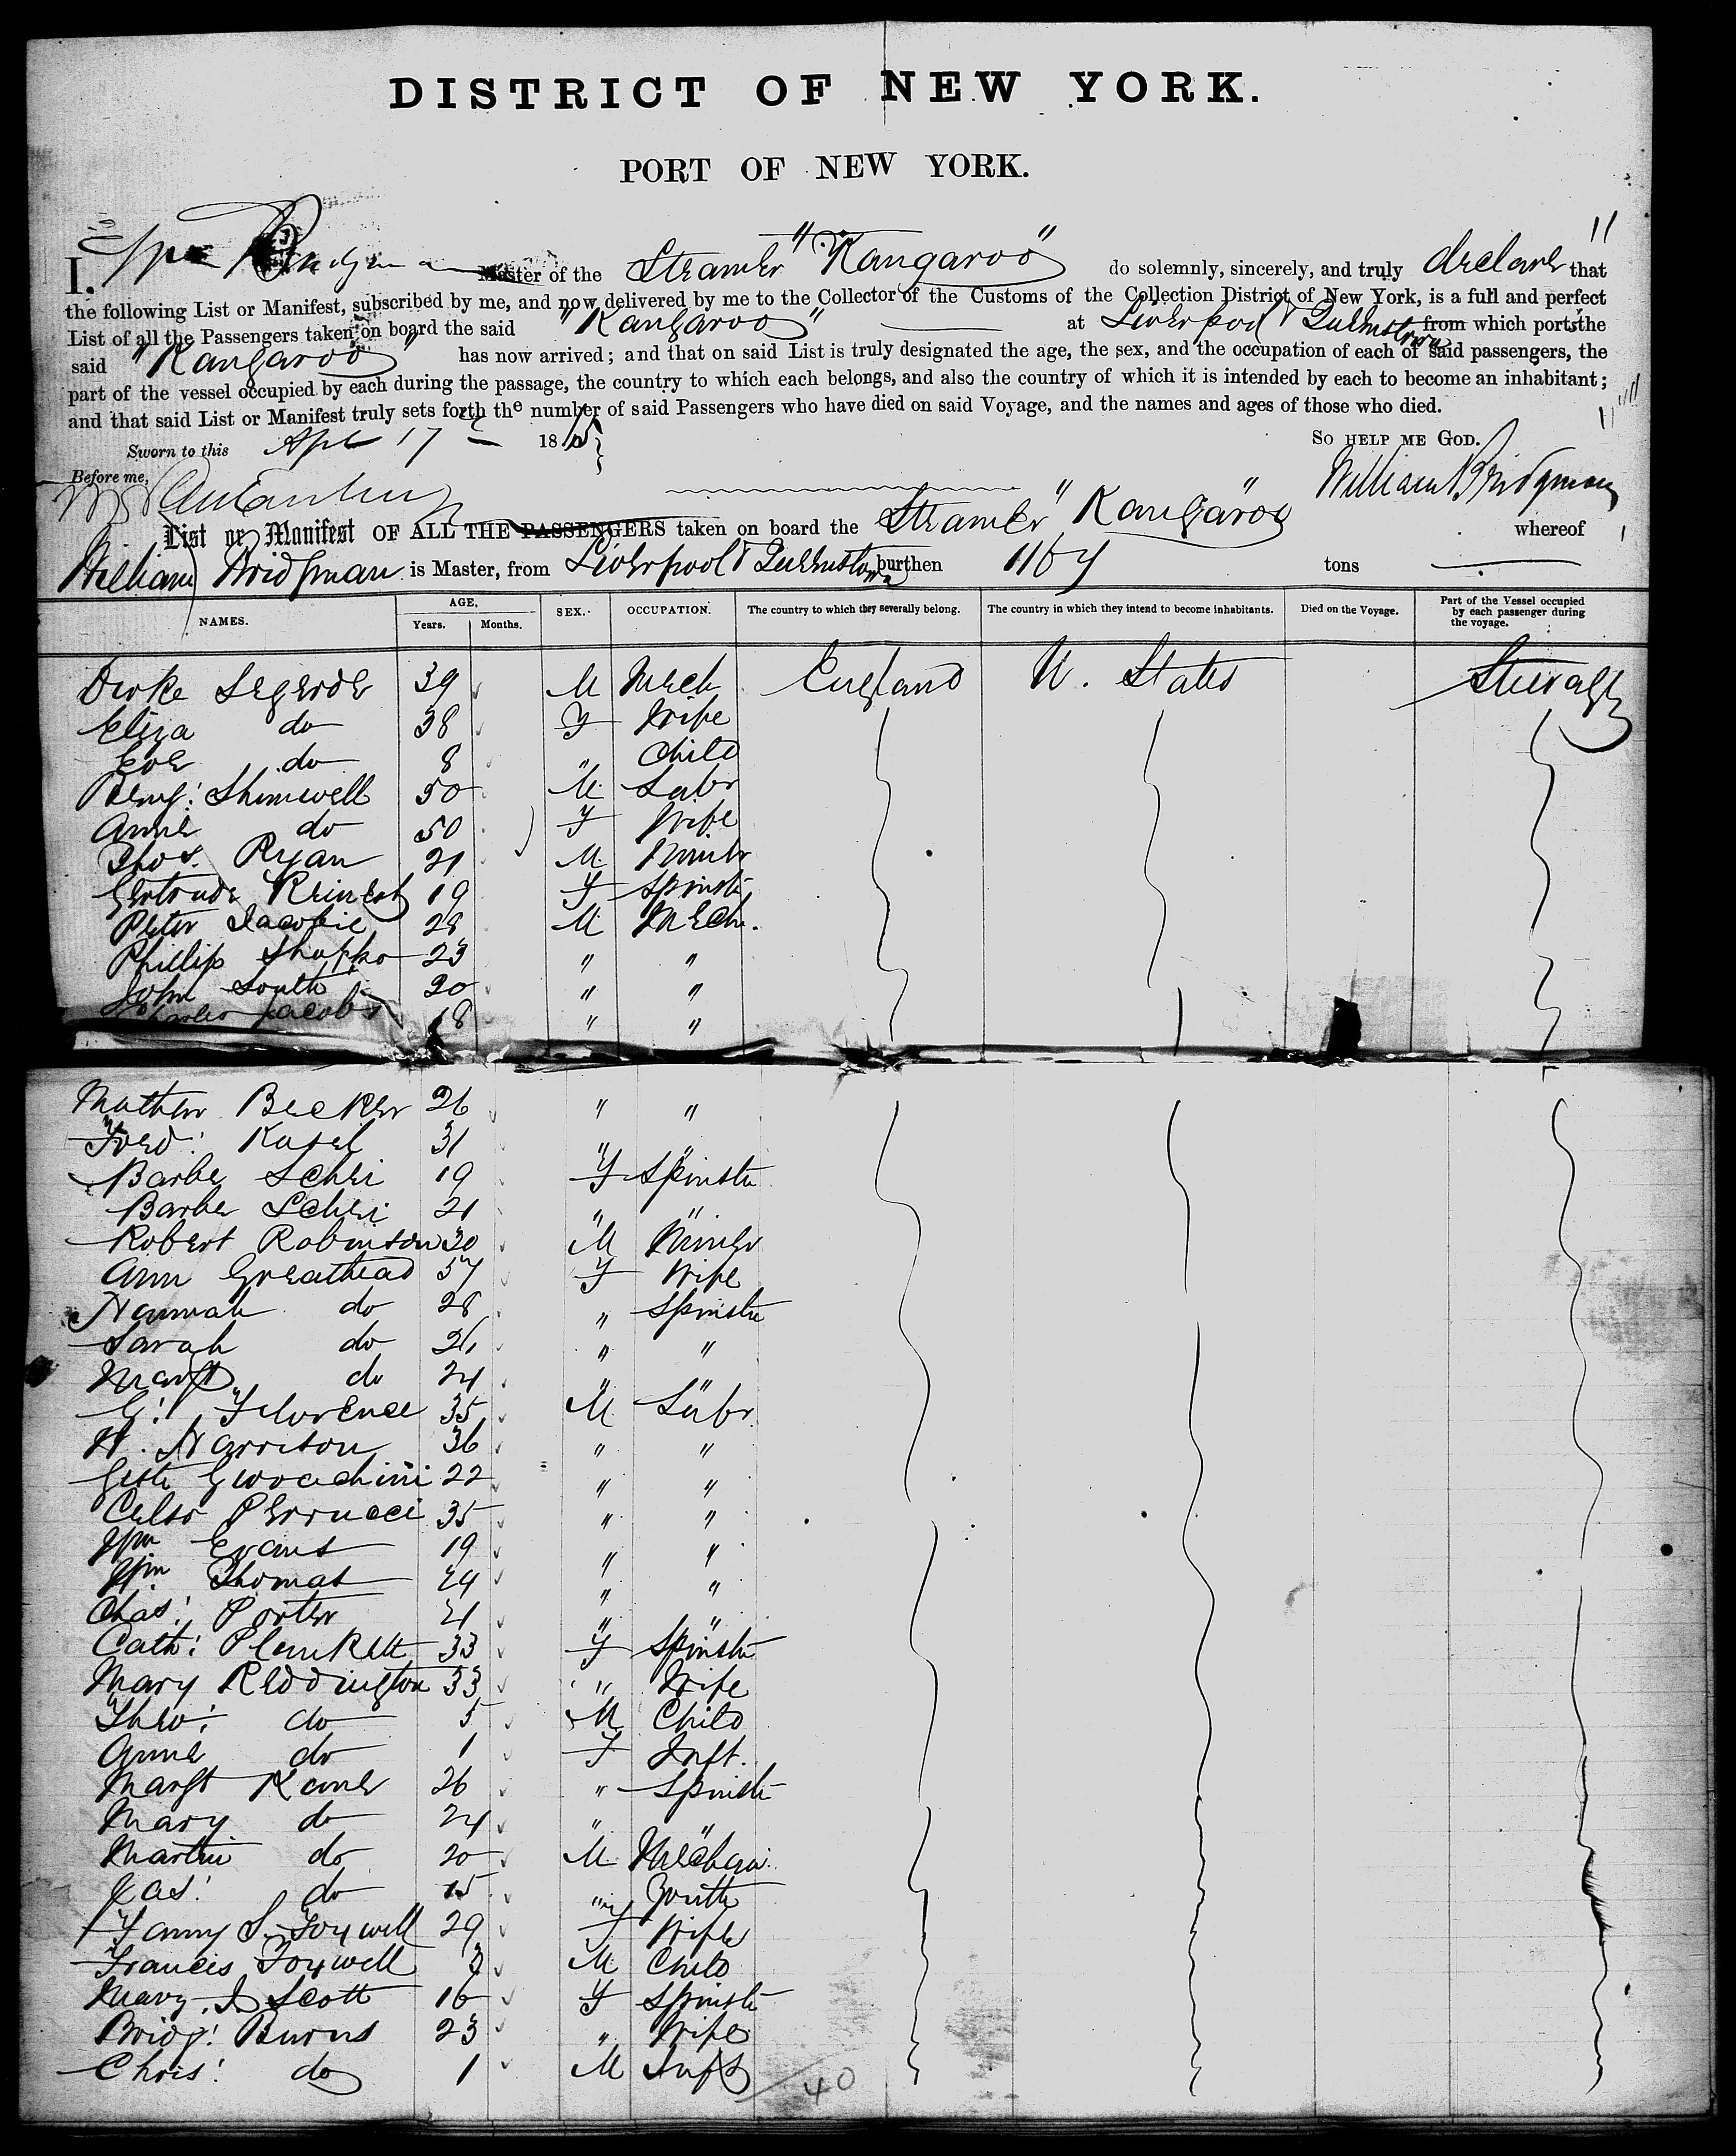 DISTRICT OF NEW YORK.
PORT OF NEW YORK.
I, Wm Bridgman Master of the Steamer "Kangaroo" do solemnly, sincerely, and truly declare that
the following List or Manifest, subscribed by me, and now delivered by me to the Collector of the Customs of the Collection District of New York, is a full and perfect
List of all the Passengers taken on board the said "Kangaroo" at Liverpool & Queenstown from which ports the
said "Kangaroo" has now arrived; and that on said List is truly designated the age, the sex, and the occupation of each of said passengers, the
part of the vessel occupied by each during the passage, the country to which each belongs, and also the country of which it is intended by each to become an inhabitant;
and that said List or Manifest truly sets forth the number of said Passengers who have died on said Voyage, and the names and ages of those who died.
Sworn to this Apl 17th 18 So help me God.
Before me, William Bridgman
List or Manifest OF ALL THE PASSENGERS taken on board the Steamer "Kangaroo" whereof
William Bridgman is Master, from Liverpool & Queenstown burthen 1164 tons
NAMES. AGE. Years. Months. SEX. OCCUPATION. The country to which they severally belong. The country in which they intend to become inhabitants. Died on the Voyage. Part of the Vessel occupied by each passenger during the voyage.
39 M Mech England U. States Steerage
Eliza do 38 F Wife
Eve do 8 " Child
Benj: Shimwell 50 M Labr
Anne do 50 F Wife
Thos. Ryan 21 M Miner
Gertrude Reinert 19 F Spinstr
Peter Jacobie 28 M Mech.
Phillip Shupko 23 " "
John South 20 " "
Charles Jacobs 18 " "
Mathew Becker 26 " "
Fred: Kasel 31 " "
Barbe Schri 19 F Spinstr
Barbe Schri 21 " "
Robert Robinson 30 M Miner
Ann Greathead 57 F Wife
Hannah do 28 " Spinstr
Sarah do 26 " "
Margt do 24 " "
G: Florence 35 M Labr
H. Harrison 36 " "
22 " "
Celso Perrucci 35 " "
Wm Evans 19 " "
Wm Thomas 24 " "
Chas: Porter 21 " "
Cath: Plunkett 33 F Spinstr
Mary Reddington 33 " Wife
Theo: do 5 M Child
Anne do 1 F Inft.
Margt Kane 26 " Spinstr
Mary do 24 " "
Martin do 20 M Mechani
Jas: do 15 " Youth
Fanny S. Foxwell 29 F Wife
Francis Foxwell 3 M Child
Mary J Scott 16 F Spinstr
Bridg: Burns 23 " Wife
Chris: do 1 M Inft
40